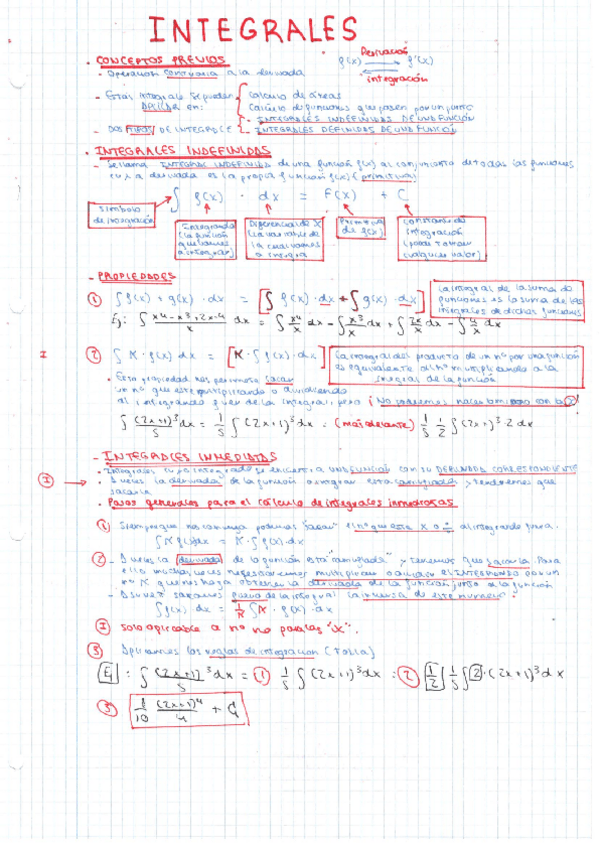 INTEGRALES
· CONCEPTOS PREVIOS
f(x) Derivación f'(x)
integración
- Operación contraria a la derivada
- Estas integrales se pueden APLICAR en: cálculo de áreas
Cálculo de funciones que pasen por un punto
- DOS TIPOS DE INTEGRALES - INTEGRALES INDEFINIDAS DE UNA FUNCIÓN
- INTEGRALES DEFINIDAS DE UNA FUNCIÓN
· INTEGRALES INDEFINIDAS
- Se llama INTEGRAL INDEFINIDA de una función f(x) al conjunto de todas las funciones
cuya derivada es la propia función f(x) (primitiva)
∫ f(x) · dx = F(x) + C
Símbolo de integración
Integrando (la función que vamos a integrar)
Diferencial de X (la variable de la cual vamos a integrar
Primitiva de f(x)
Constante de integración (puede tomar cualquier valor)
- PROPIEDADES
① ∫ f(x) + g(x) · dx = [∫ f(x) · dx + ∫ g(x) · dx]
La integral de la suma de funciones es la suma de las integrales de dichas funciones
Ej: ∫ x4-x3+2x-4/x dx = ∫ x4/x dx - ∫ x3/x dx + ∫ 2x/x dx - ∫ 4/x dx
② ∫ K · f(x) dx = [K · ∫ f(x) · dx]
La integral del producto de un nº por una función es equivalente al nº multiplicando a la integral de la función
· Esta propiedad nos permite sacar
un nº que esté multiplicando o dividiendo
al integrando fuera de la integral, pero ¡No podremos hacer lo mismo con la x!
∫ (2x+1)3/5 dx = 1/5 ∫ (2x+1)3 dx = (más adelante) 1/5 · 1/2 ∫ (2x+1)3 · 2 dx
- INTEGRALES INMEDIATAS
· Integrales cuyo integrando se encuentra una FUNCIÓN con su DERIVADA CORRESPONDIENTE
· A veces la derivada de la función a integrar está camuflada y tendremos que
sacarla
· Pasos generales para el cálculo de integrales inmediatas
① Siempre que nos convenga podemos "sacar" el nº que esté x o ÷ al integrando fuera.
∫ K f(x) dx = K · ∫ f(x) · dx
② - A veces la derivada de la función está "camuflada" y tenemos que sacarla. Para
ello muchas veces necesitaremos multiplicar o dividir el INTEGRANDO por un
nº K que nos haga obtener la derivada de la función junto a la función
- A su vez sacamos fuera de la integral la inversa de este número
∫ f(x) · dx = 1/K ∫ K · f(x) · dx
! Solo aplicable a nº no para las "x".
③ Aplicamos las reglas de integración (Tabla)
Ej: ∫ (2x+1)3/5 dx = ① 1/5 ∫ (2x+1)3 dx = ② 1/2 · 1/5 ∫ 2 · (2x+1)3 dx
③ 1/10 (2x+1)4/4 + C